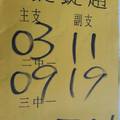 主支 副支
03 11
二中一
09 19
三中一